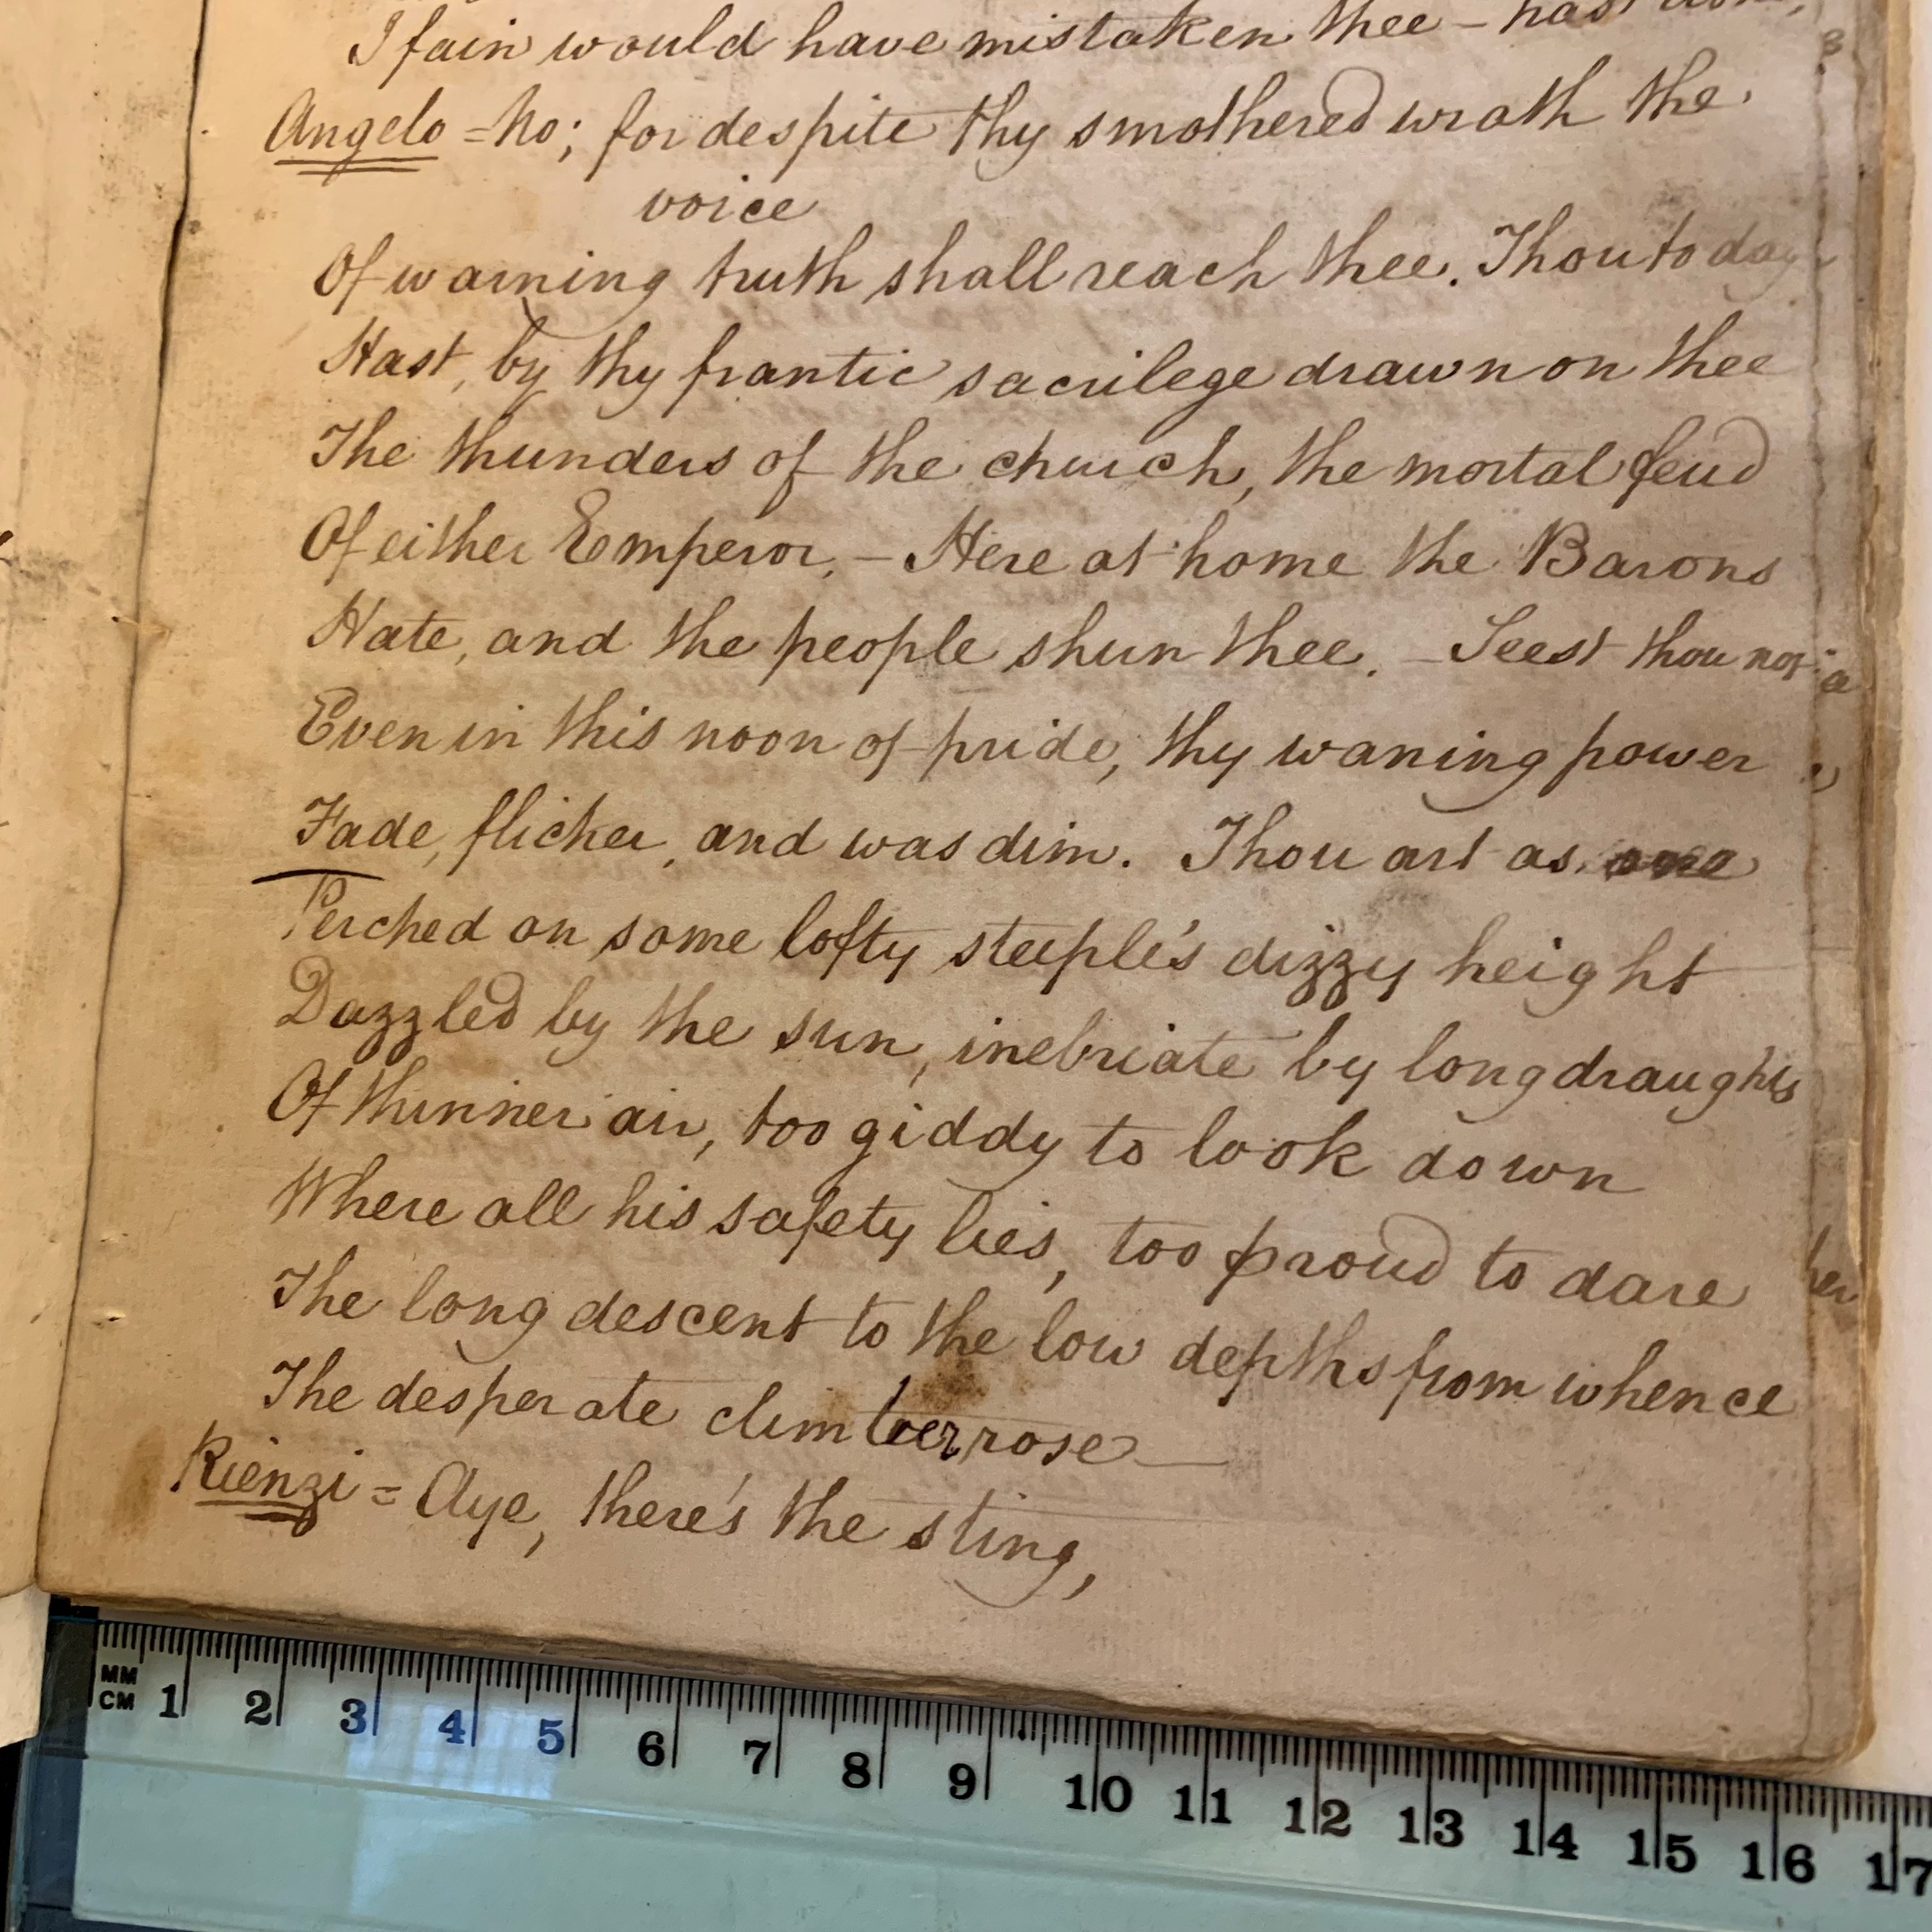 I fain would have mistaken thee – hast
Angelo = No; for despite thy smothered wrath the
voice
Of warning truth shall reach thee. Thou to day
Hast, by thy frantic sacrilege drawn on thee
The thunders of the church, the mortal feud
Of either Emperor, – Here at home the Barons
Hate, and the people shun thee. – Seest thou not
Even in this noon of pride, thy waning power
Fade, flicker, and was dim. Thou art as one
Perched on some lofty steeple's dizzy height
Dazzled by the sun, inebriate by long draughts
Of thinner air, too giddy to look down
Where all his safety lies, too proud to dare
The long descent to the low depths from whence
The desperate climber rose —
Rienzi = Aye, there's the sting,
MM
CM 1 2 3 4 5 6 7 8 9 10 11 12 13 14 15 16 17